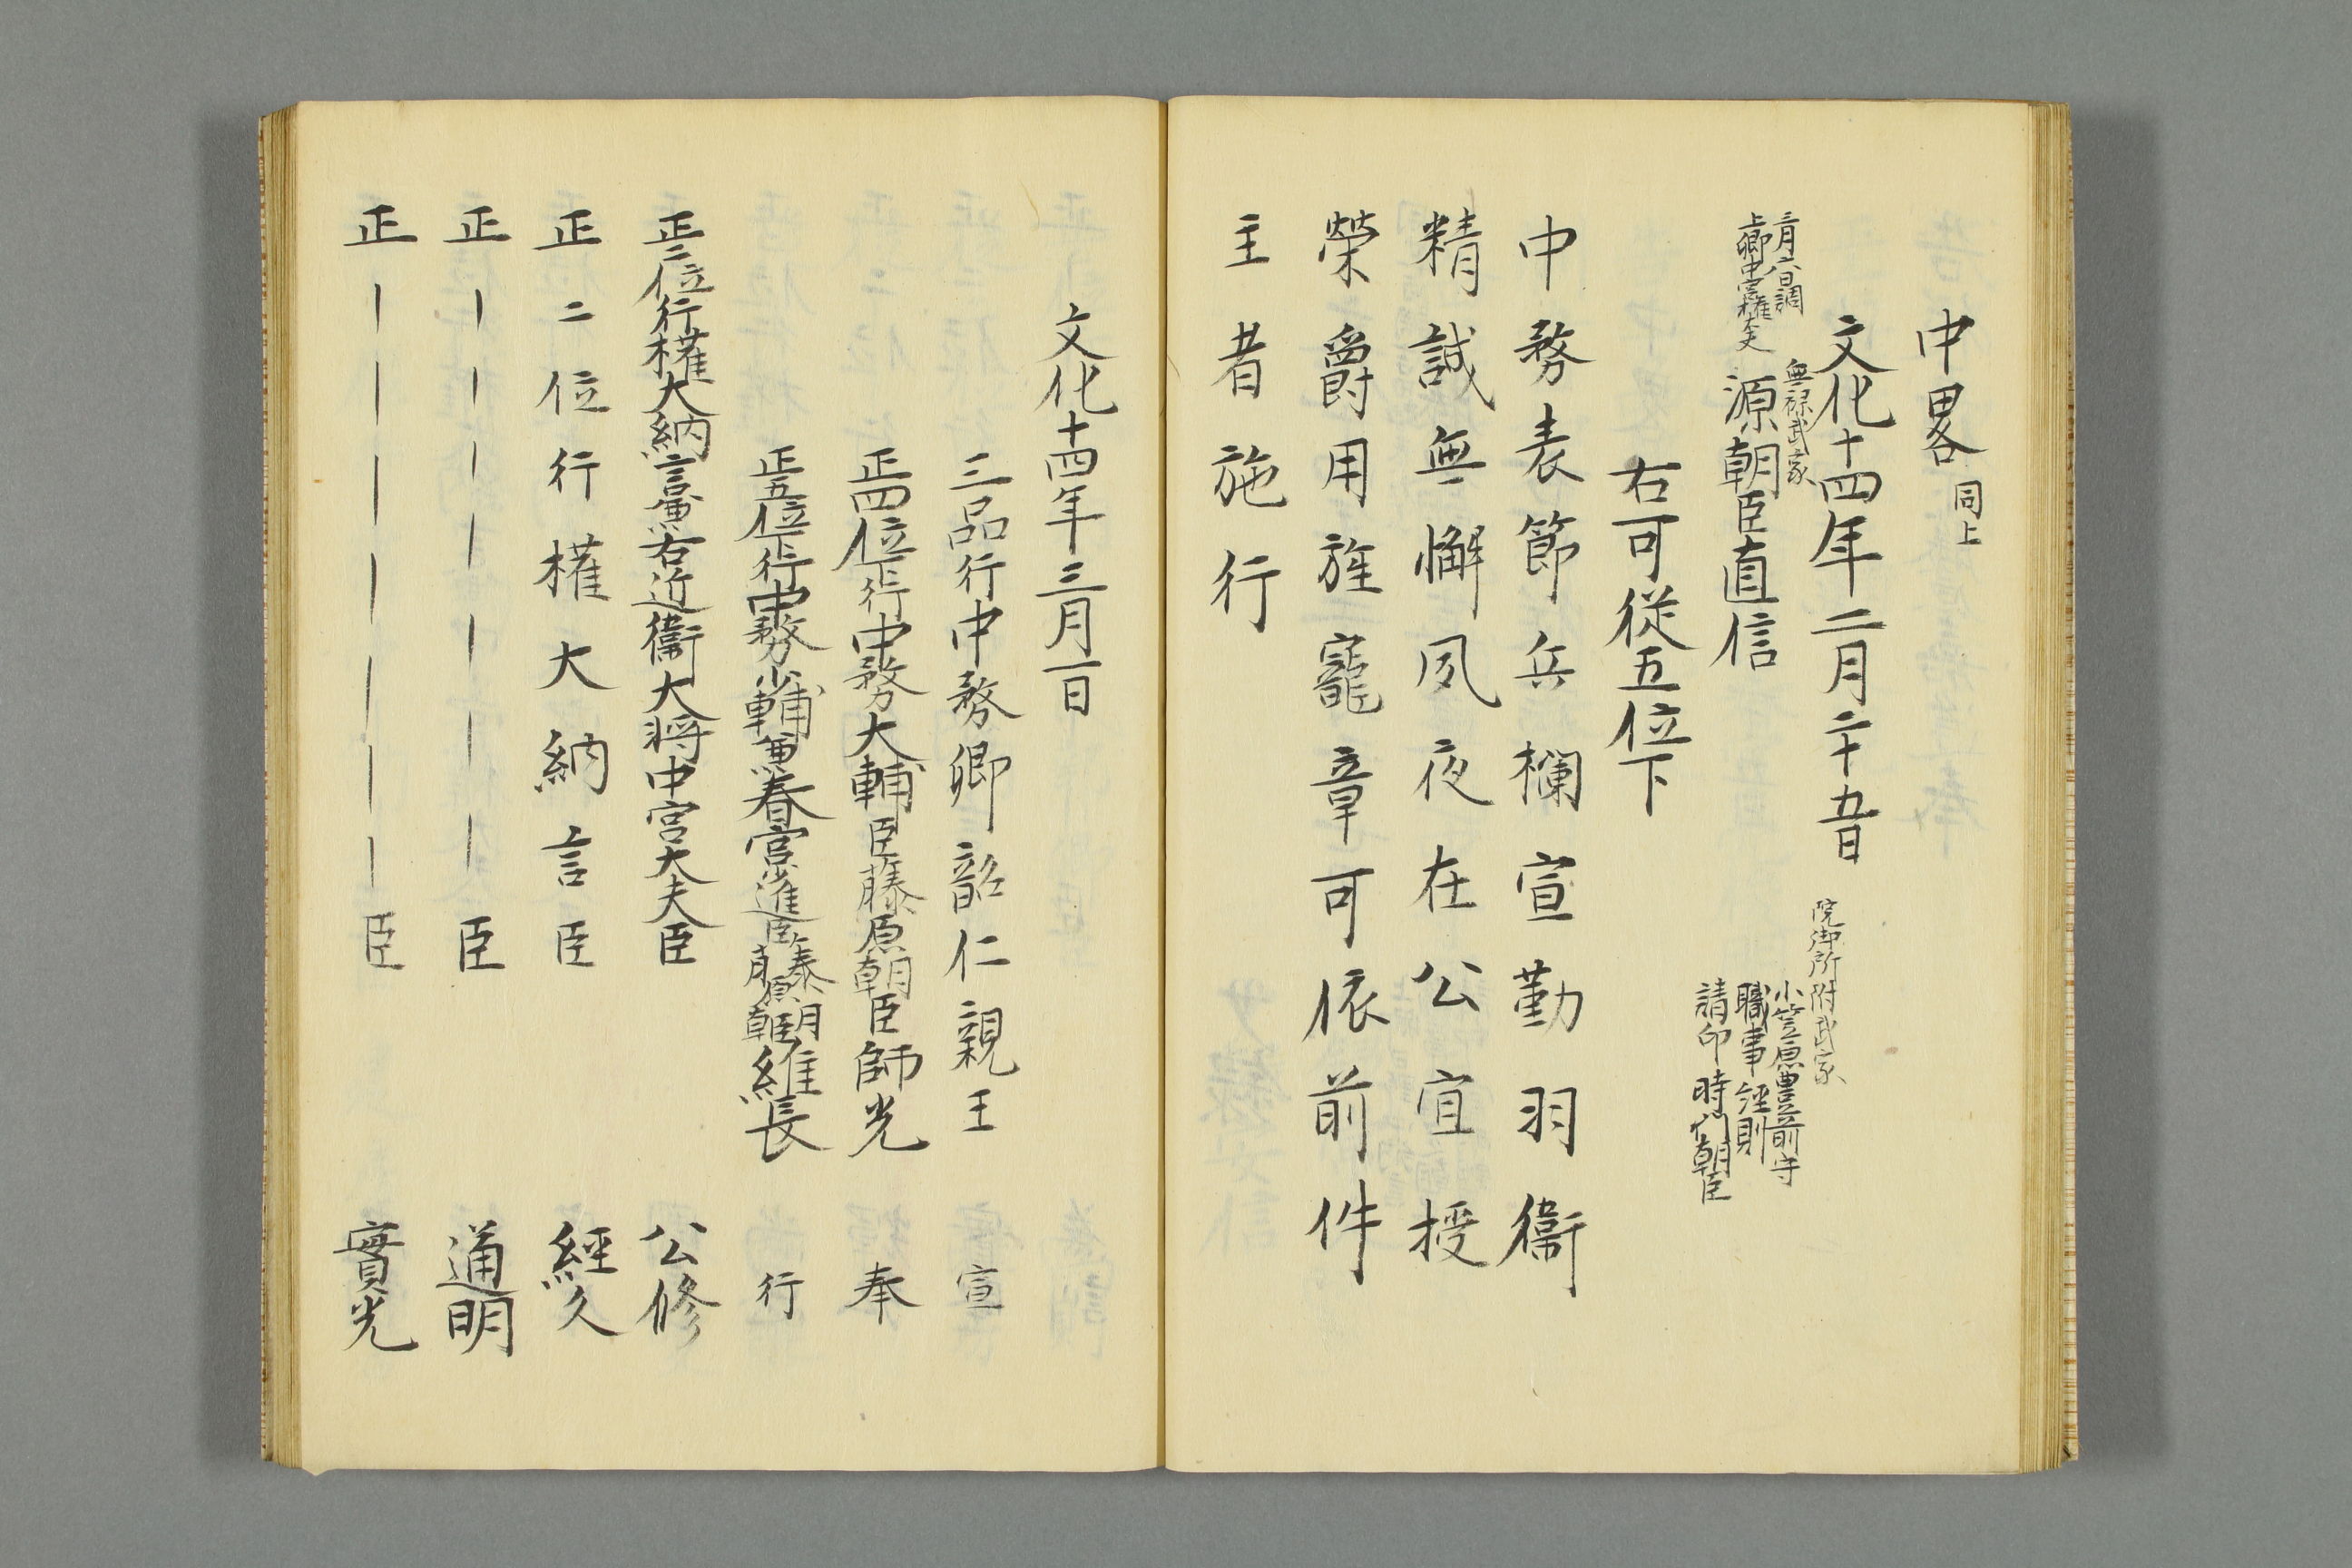 中畧 同上
文化十四年二月二十五日
院御所附武家
小笠原豊前守
職事経則
請印時門朝臣
無禄武家
三月六日調
上卿中宮権大夫
源朝臣直信
右可従五位下
中務表節兵欄宣勤羽衞
精誠無懈夙夜在公宜授
榮爵用旌寵章可依前件
主者施行
文化十四年三月一日
三品行中務卿韶仁親王 宣
正四位下行中務大輔臣藤原朝臣師光 奉
正五位下行中務少輔兼春宮少進臣藤原朝臣維長 行
正二位行権大納言兼右近衞大将中宮大夫臣 公修
正二位行権大納言臣 經久
正ーーーーーー臣 通明
正ーーーーーーー臣 實光